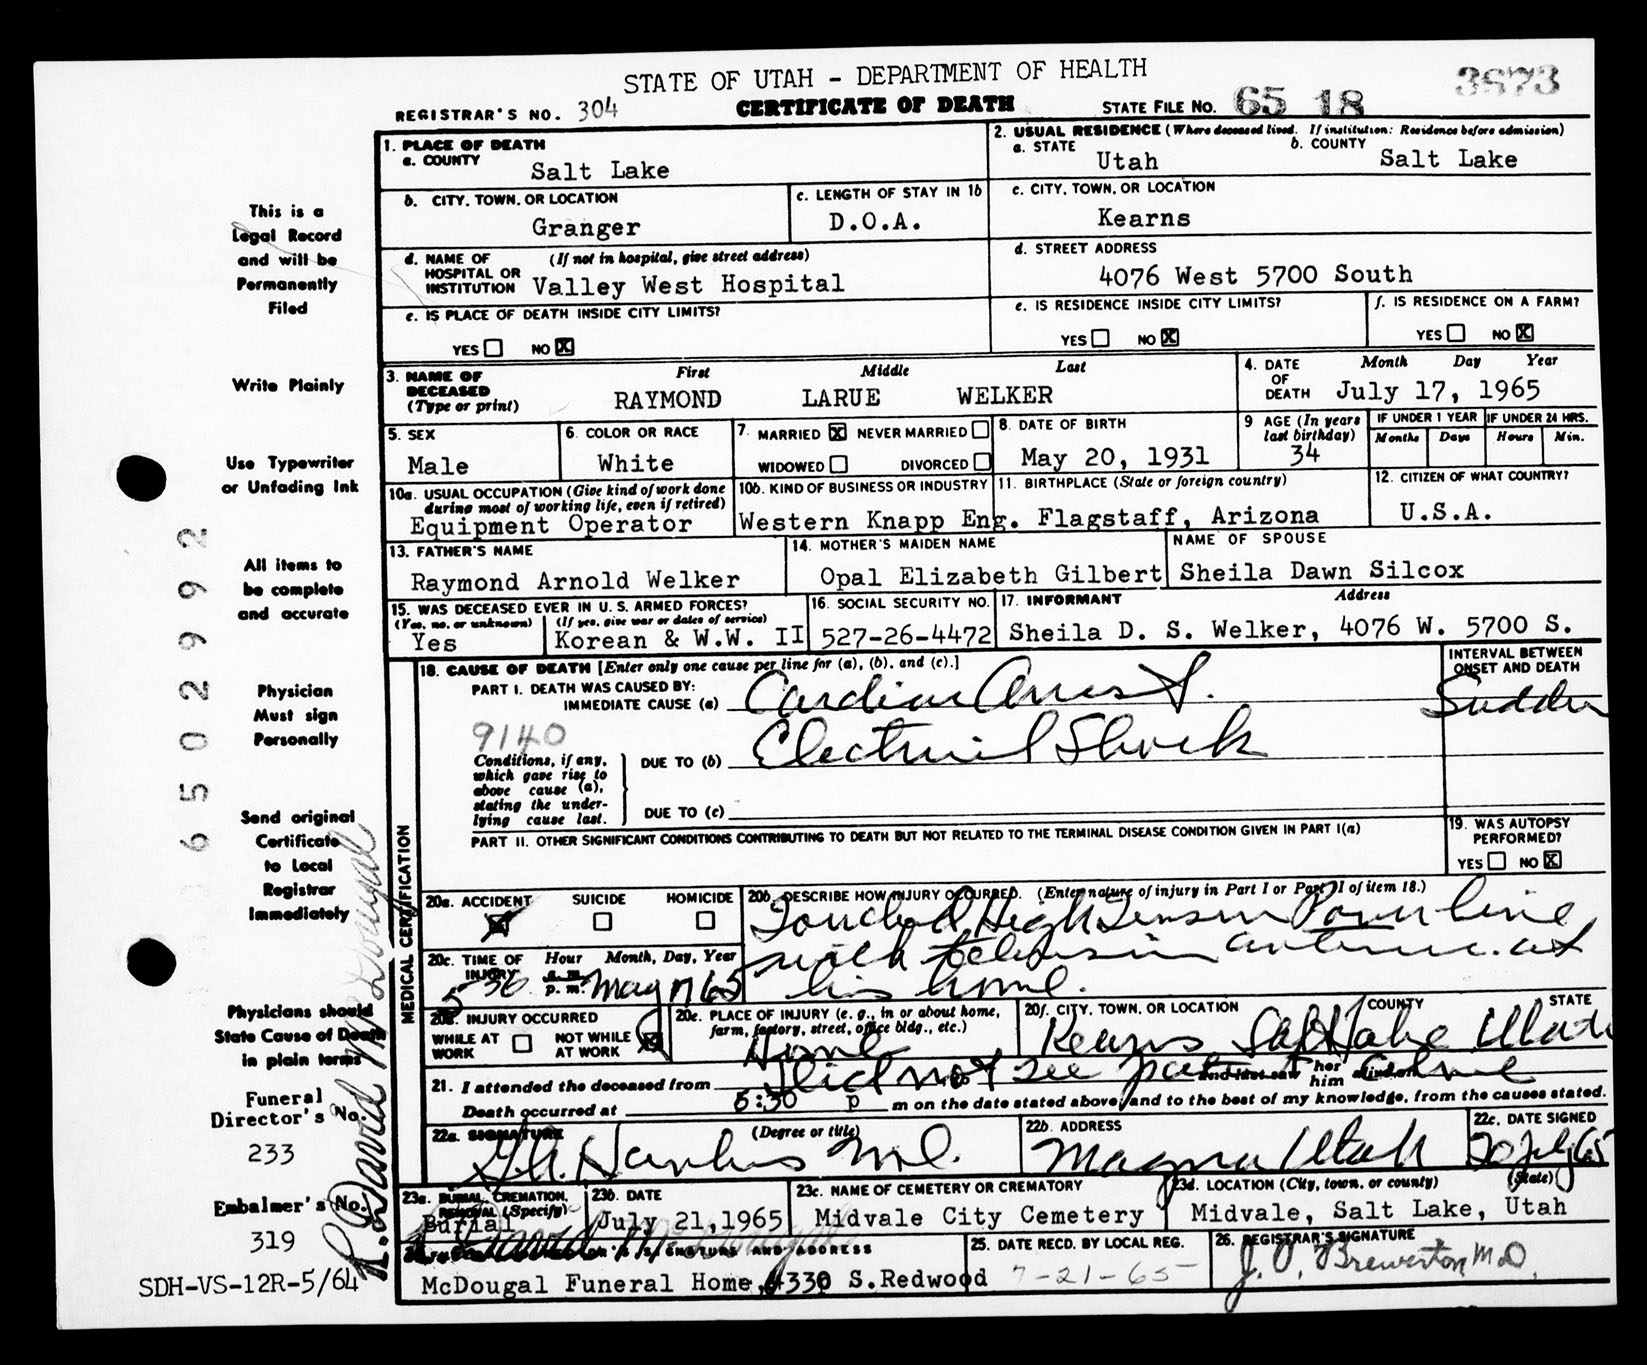 STATE OF UTAH – DEPARTMENT OF HEALTH
3673
REGISTRAR'S NO. 304 CERTIFICATE OF DEATH STATE FILE NO. 65 18
1. PLACE OF DEATH
a. COUNTY
Salt Lake
2. USUAL RESIDENCE (Where deceased lived. If institution: Residence before admission)
a. STATE Utah b. COUNTY Salt Lake
b. CITY, TOWN, OR LOCATION
Granger
c. LENGTH OF STAY IN 1b
D.O.A.
c. CITY, TOWN, OR LOCATION
Kearns
d. NAME OF HOSPITAL OR INSTITUTION (If not in hospital, give street address)
Valley West Hospital
d. STREET ADDRESS
4076 West 5700 South
e. IS PLACE OF DEATH INSIDE CITY LIMITS?
YES NO X
e. IS RESIDENCE INSIDE CITY LIMITS?
YES NO X
f. IS RESIDENCE ON A FARM?
YES NO X
3. NAME OF DECEASED (Type or print)
First Middle Last
RAYMOND LARUE WELKER
4. DATE OF DEATH Month Day Year
July 17, 1965
5. SEX
Male
6. COLOR OR RACE
White
7. MARRIED X NEVER MARRIED
WIDOWED DIVORCED
8. DATE OF BIRTH
May 20, 1931
9 AGE (In years last birthday)
34
IF UNDER 1 YEAR IF UNDER 24 HRS.
Months Days Hours Min.
10a. USUAL OCCUPATION (Give kind of work done during most of working life, even if retired)
Equipment Operator
10b. KIND OF BUSINESS OR INDUSTRY
Western Knapp Eng.
11. BIRTHPLACE (State or foreign country)
Flagstaff, Arizona
12. CITIZEN OF WHAT COUNTRY?
U.S.A.
13. FATHER'S NAME
Raymond Arnold Welker
14. MOTHER'S MAIDEN NAME
Opal Elizabeth Gilbert
NAME OF SPOUSE
Sheila Dawn Silcox
15. WAS DECEASED EVER IN U. S. ARMED FORCES?
(Yes, no, or unknown) (If yes, give war or dates of service)
Yes Korean & W.W. II
16. SOCIAL SECURITY NO.
527-26-4472
17. INFORMANT Address
Sheila D. S. Welker, 4076 W. 5700 S.
MEDICAL CERTIFICATION
18. CAUSE OF DEATH [Enter only one cause per line for (a), (b), and (c).]
INTERVAL BETWEEN ONSET AND DEATH
PART I. DEATH WAS CAUSED BY:
IMMEDIATE CAUSE (a) Cardiac Arrest. Sudden
9140
Conditions, if any, which gave rise to above cause (a), stating the under-lying cause last.
DUE TO (b) Electrical Shock
DUE TO (c)
PART II. OTHER SIGNIFICANT CONDITIONS CONTRIBUTING TO DEATH BUT NOT RELATED TO THE TERMINAL DISEASE CONDITION GIVEN IN PART I(a)
19. WAS AUTOPSY PERFORMED?
YES NO X
20a. ACCIDENT SUICIDE HOMICIDE
X
20b. DESCRIBE HOW INJURY OCCURRED. (Enter nature of injury in Part I or Part II of item 18.)
Touched High Tension Power line
with television antenna. at
his home.
20c. TIME OF INJURY Hour Month, Day, Year
5 30 a.m. p.m. May 17 65
20d. INJURY OCCURRED
WHILE AT WORK NOT WHILE AT WORK X
20e. PLACE OF INJURY (e. g., in or about home, farm, factory, street, office bldg., etc.)
Home
20f. CITY, TOWN, OR LOCATION COUNTY STATE
Kearns Salt Lake Utah
21. I attended the deceased from Did not see patient alive and last saw her him alive on
Death occurred at 5:30 p m on the date stated above, and to the best of my knowledge, from the causes stated.
22a. SIGNATURE (Degree or title)
M.D.
22b. ADDRESS
Magna Utah
22c. DATE SIGNED
20 July 65
23a. BURIAL, CREMATION, REMOVAL (Specify)
Burial
23b. DATE
July 21, 1965
23c. NAME OF CEMETERY OR CREMATORY
Midvale City Cemetery
23d. LOCATION (City, town, or county) (State)
Midvale, Salt Lake, Utah
24. FUNERAL DIRECTOR'S SIGNATURE AND ADDRESS
R. David McDougal
McDougal Funeral Home, 4330 S. Redwood
25. DATE RECD. BY LOCAL REG.
7-21-65
26. REGISTRAR'S SIGNATURE
J. O. Brewerton M.D.
This is a
Legal Record
and will be
Permanently
Filed
Write Plainly
Use Typewriter
or Unfading Ink
All items to
be complete
and accurate
Physician
Must sign
Personally
Send original
Certificate
to Local
Registrar
Immediately
Physicians should
State Cause of Death
in plain terms
Funeral
Director's No.
233
Embalmer's No.
319
R. David McDougal
SDH-VS-12R-5/64
65 02992